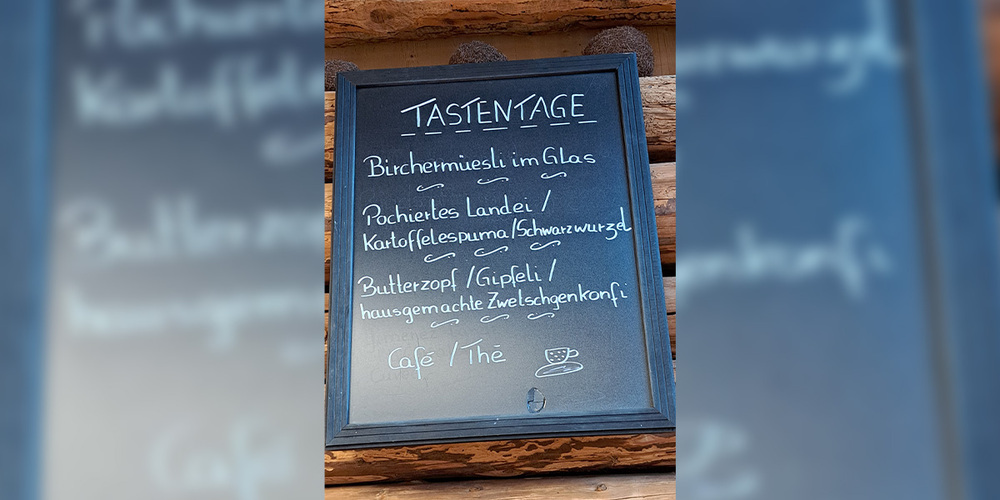 TASTENTAGE
Birchermüesli im Glas
Pochiertes Landei /
Kartoffelespuma/Schwarzwurzel
Butterzopf /Gipfeli /
hausgemachte Zwetschgenkonfi
Café /Thē